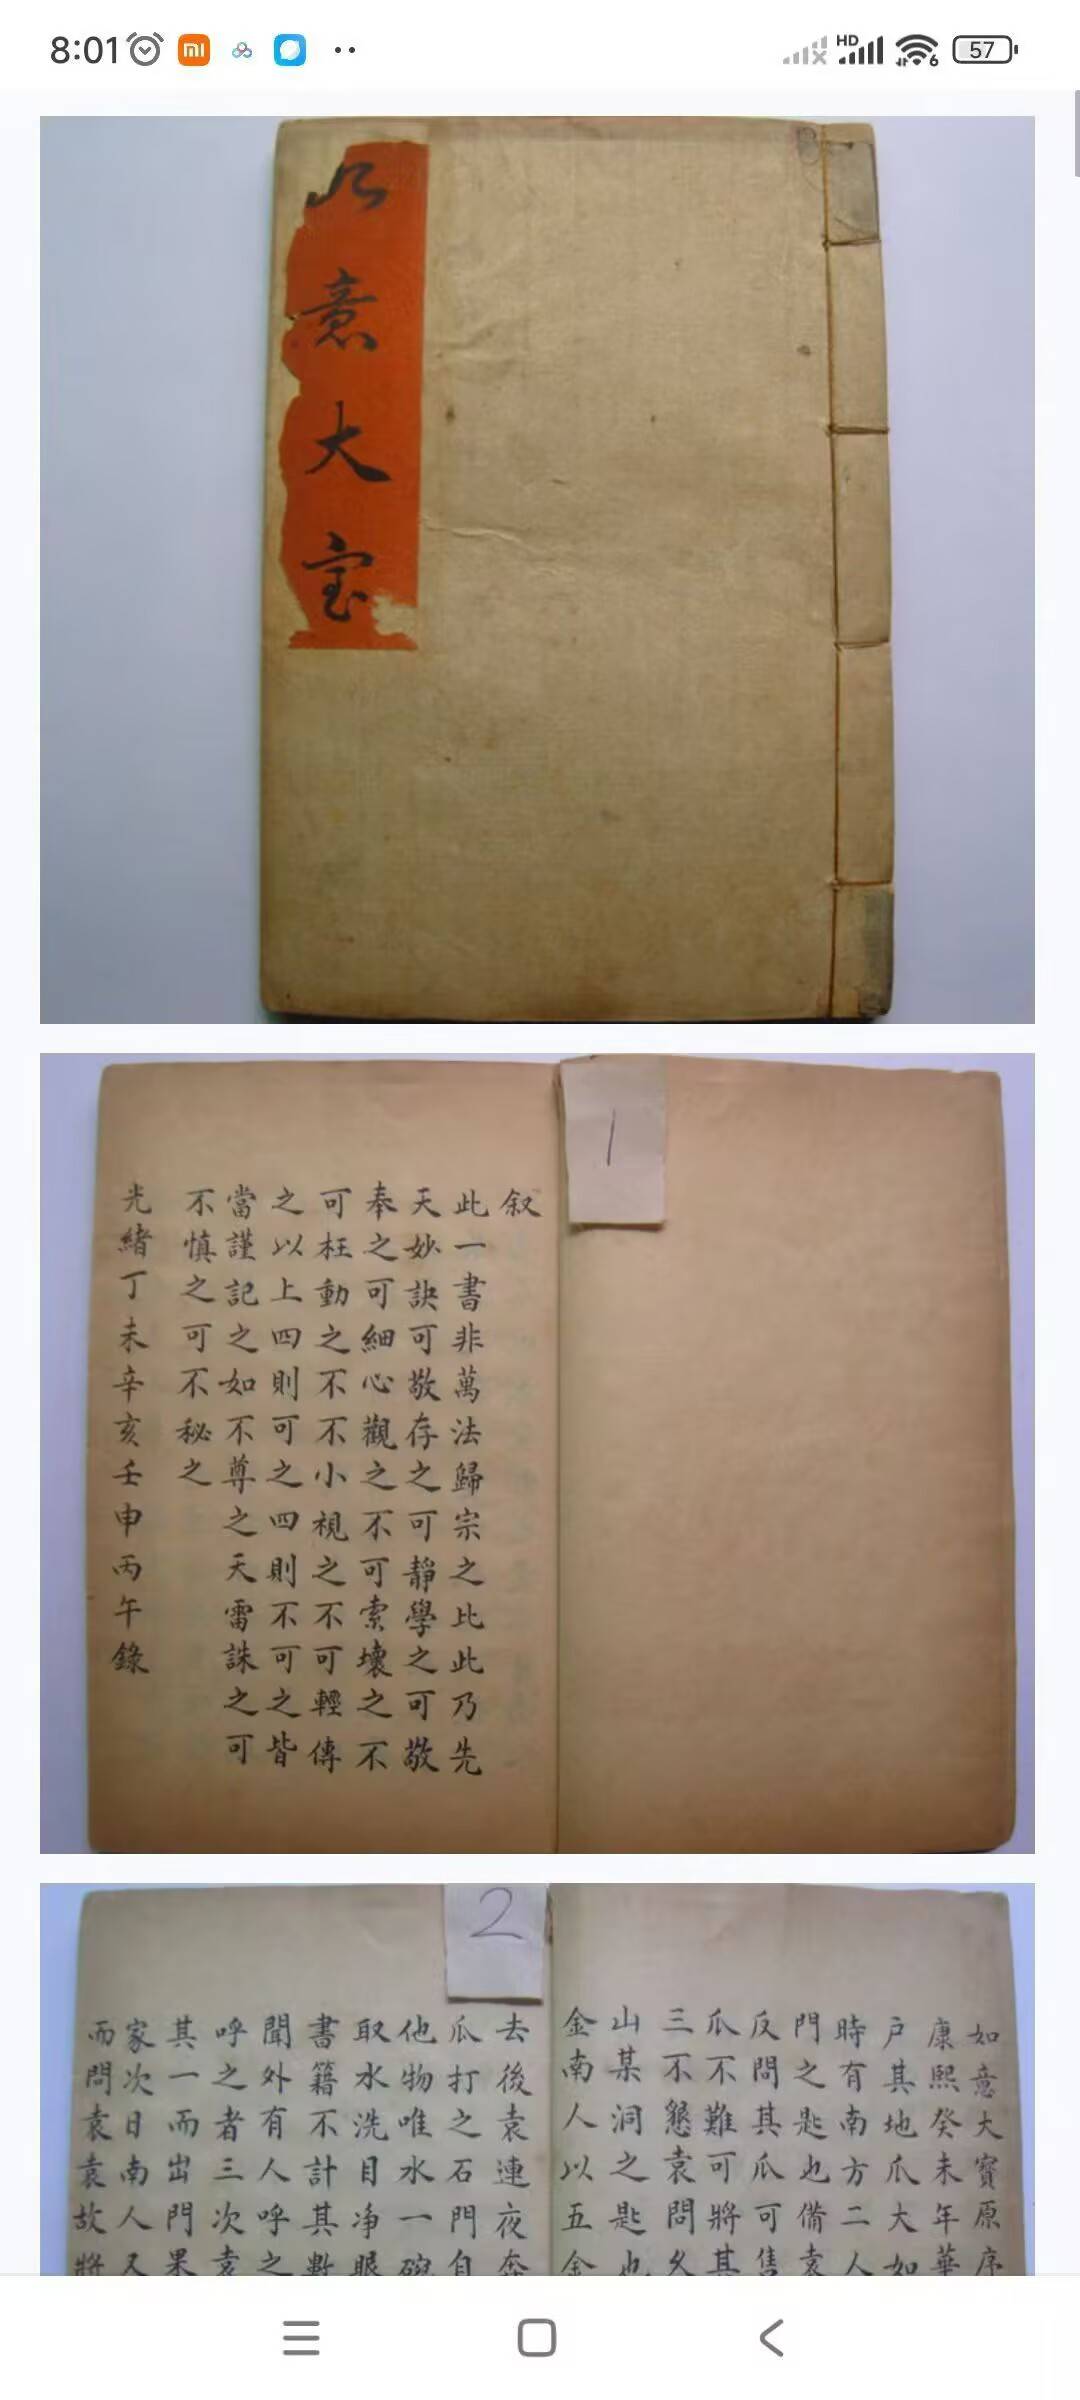 8:01
HD
6
57
如意大宝
1
叙
此一書非萬法歸宗之比此乃先
天妙訣可敬存之可靜學之可敬
奉之可細心觀之不可索壞之不
可枉動之不不小視之不可輕傳
之以上四則可之四則不可之皆
當謹記之如不尊之天雷誅之可
不慎之可不秘之
光緒丁未辛亥壬申丙午錄
2
如意大寶原序
康熙癸未年華
戶其地爪大如
時有南方二人
門之匙也備袁
反問其爪可售
爪不難可將其
三不懇袁問久
山某洞之匙也
金南人以五金
去後袁連夜奔
爪打之石門自
他物唯水一碗
取水洗目净眼
書籍不計其數
聞外有人呼之
呼之者三次袁
其一而出門果
家次日南人又
而問袁袁故將